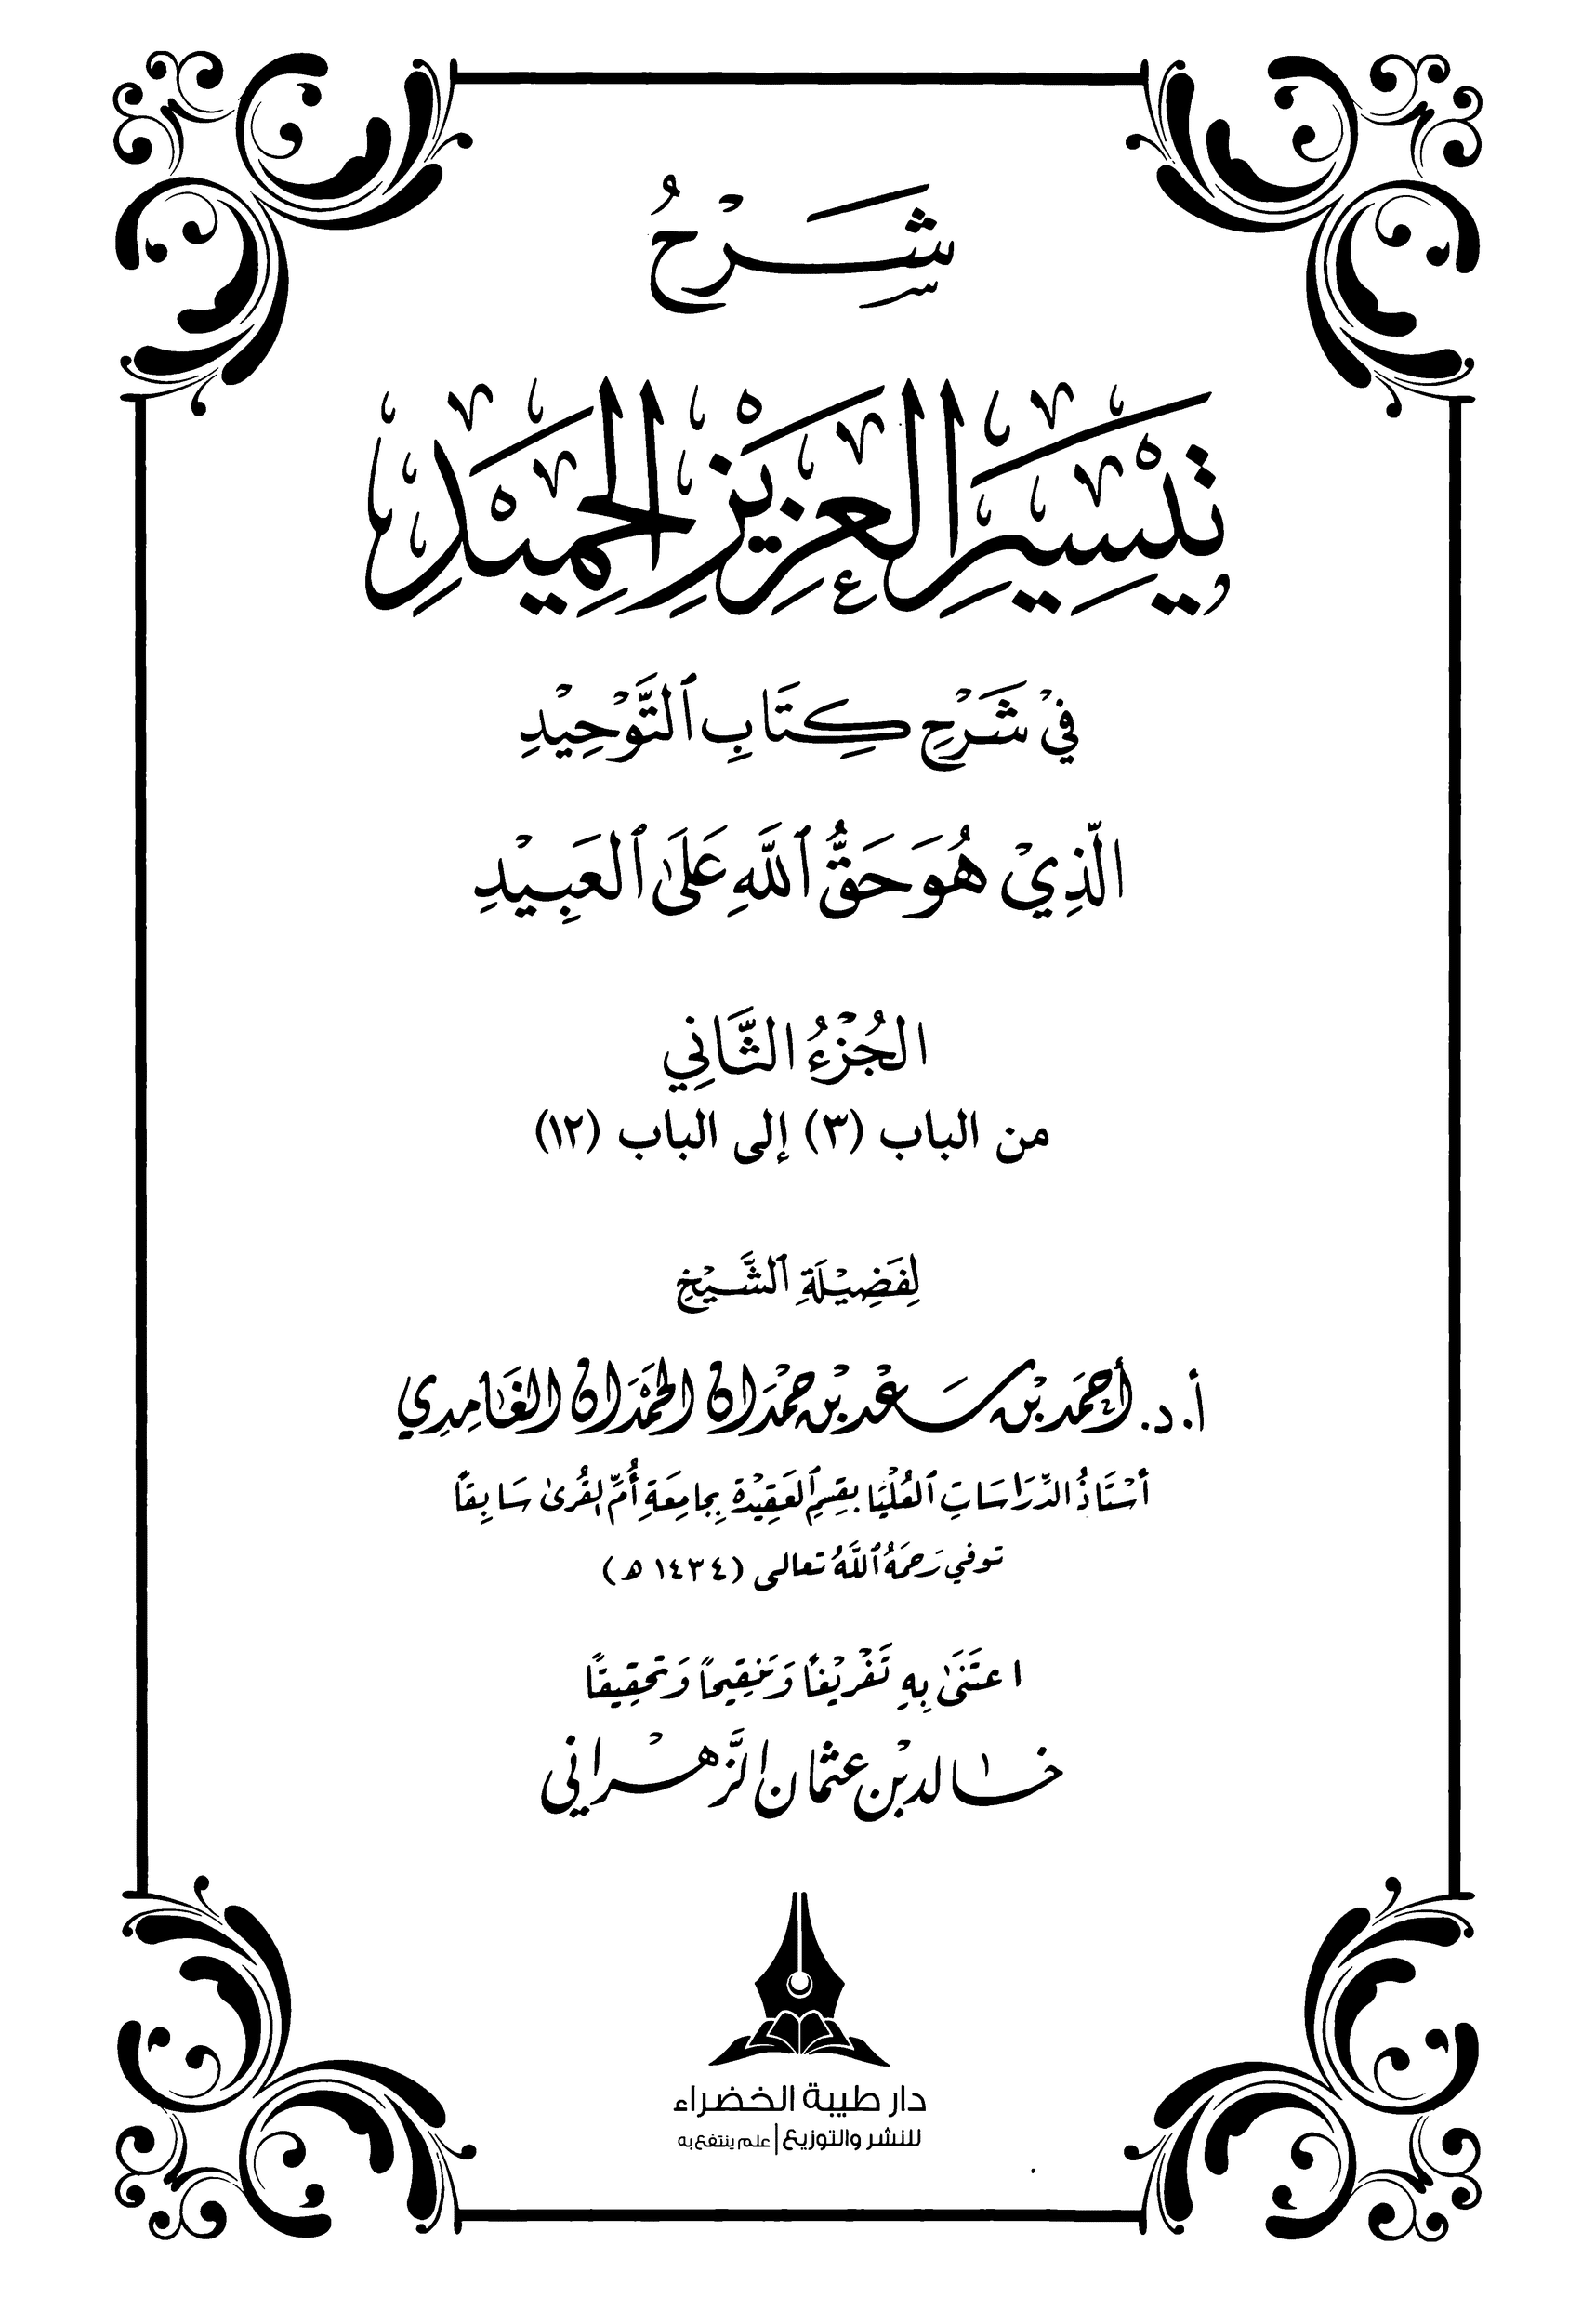 شَرْحُ
تَيْسِيرِ الْعَزِيزِ الْحَمِيْدِ
فِيْ شَرْحِ كِتَابِ ٱلتَّوْحِيْدِ
الَّذِيْ هُوَ حَقُّ ٱللَّهِ عَلَى ٱلعَبِيْدِ
الجُزْءُ الثَّانِي
من الباب (٣) إلى الباب (١٢)
لِفَضِيْلَةِ ٱلشَّيْخِ
أ. د. أَحمَد بْن سَعْد بْن حمْدَان الحمْدَان الغَامِدِي
أسْتَاذُ الدِّرَاسَاتِ ٱلعُلْيَا بقِسْمِ ٱلعَقِيْدَة بِجامِعَةِ أُمِّ القُرىٰ سَابِقًا
توفي رَحمَهُ ٱللَّهُ تعالى (١٤٣٤ هـ)
اعتَنَىٰ بِهِ تَفْرِيْغًا وَتَنقِيحًا وَتحقِيقًا
خالد بْن عثمان الزَّهْراني
دار طيبة الخضراء
للنشر والتوزيع | علم ينتفع به